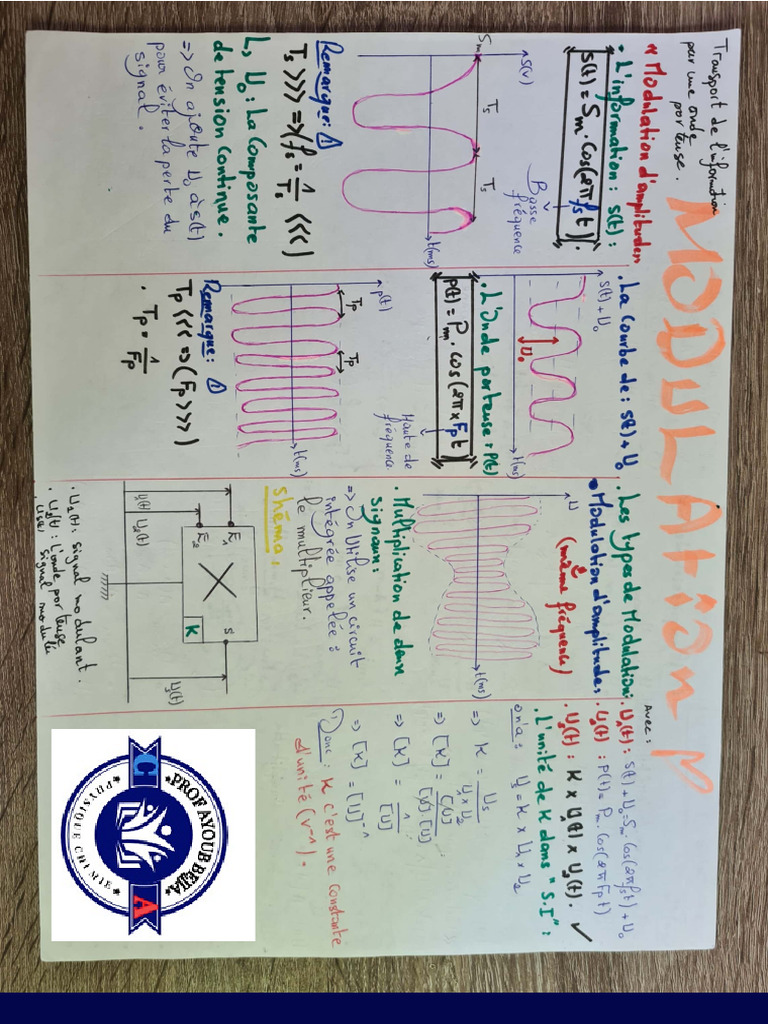 MODULATION
Transport de l'information
par une onde
porteuse.
" Modulation d'amplitude "
• L'information : s(t) :
s(t) = Sm . cos(2π fs t) .
Basse
fréquence
s(v)
Sm
Ts
Ts
t(ms)
Remarque: ①
Ts >>> => (fs = 1/Ts <<<)
↳ U₀ : La Composante
de tension continue.
=> On ajoute U₀ à s(t)
pour éviter la perte du
signal.
. La Courbe de : s(t) + U₀
s(t) + U₀
U₀
t(ms)
. L'onde porteuse : P(t)
p(t) = Pm . cos(2π x Fp t)
Haute de
fréquence
p(t)
Tp
Tp
t(ms)
Remarque: ①
Tp <<< => (Fp >>>)
. Tp = 1/Fp
. Les types de Modulation :
• Modulation d'amplitudes
(même fréquence)
U
t(ms)
. Multiplication de deux
signaux :
=> On Utilise un circuit
intégrée appelée :
le multiplieur.
Shéma :
E₁
E₂
X
K
S
U₁(t)
U₂(t)
Us(t)
. U₂(t) : signal modulant.
. U₂(t) : L'onde porteuse
Us(t) signal modulé
Avec :
. U₁(t) : s(t) + U₀ = Sm . cos(2π fs t) + U₀
. U₂(t) : P(t) = Pm . cos(2π Fp t)
. Us(t) : K x U₁(t) x U₂(t). ✓
. L'unité de K dans " S.I " :
on a : Us = K x U₁ x U₂
=> K = Us / U₁ x U₂
=> [K] = [U] / [U] [U]
=> [K] = 1 / [U]
=> [K] = [U]⁻¹
Donc : K c'est une constante
d'unité (V⁻¹) .
PROF AYOUB BEJJA
C A